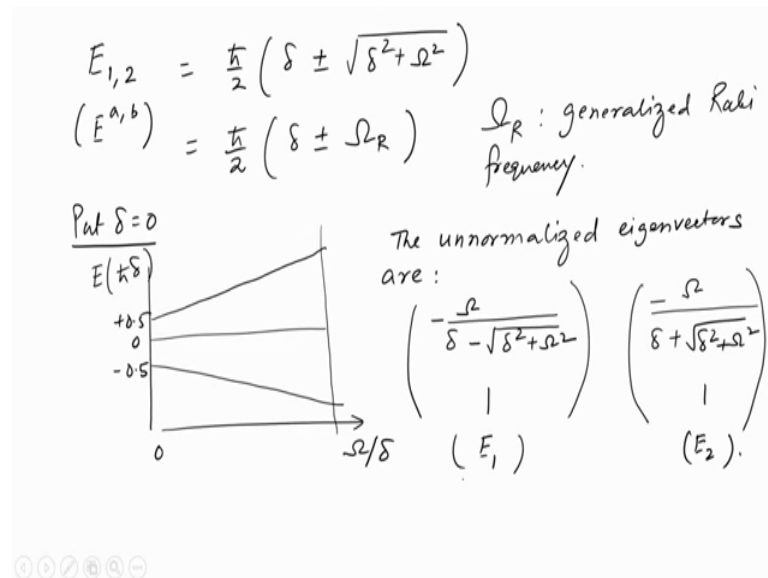 E₁,₂ = ħ/2 ( δ ± √(δ² + Ω²) )
(E^{a,b}) = ħ/2 ( δ ± Ω_R )
Ω_R : generalized Rabi
frequency.
Put δ = 0
E(ħδ)
+0.5
0
-0.5
0
Ω/δ
The unnormalized eigenvectors
are :
( - Ω / (δ - √(δ² + Ω²)) ) ( - Ω / (δ + √(δ² + Ω²)) )
1 1
( E₁ ) (E₂).